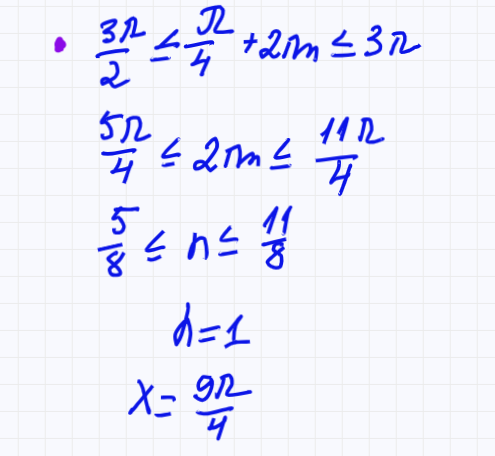 3π/2 ≤ π/4 + 2πn ≤ 3π
5π/4 ≤ 2πn ≤ 11π/4
5/8 ≤ n ≤ 11/8
n = 1
x = 9π/4